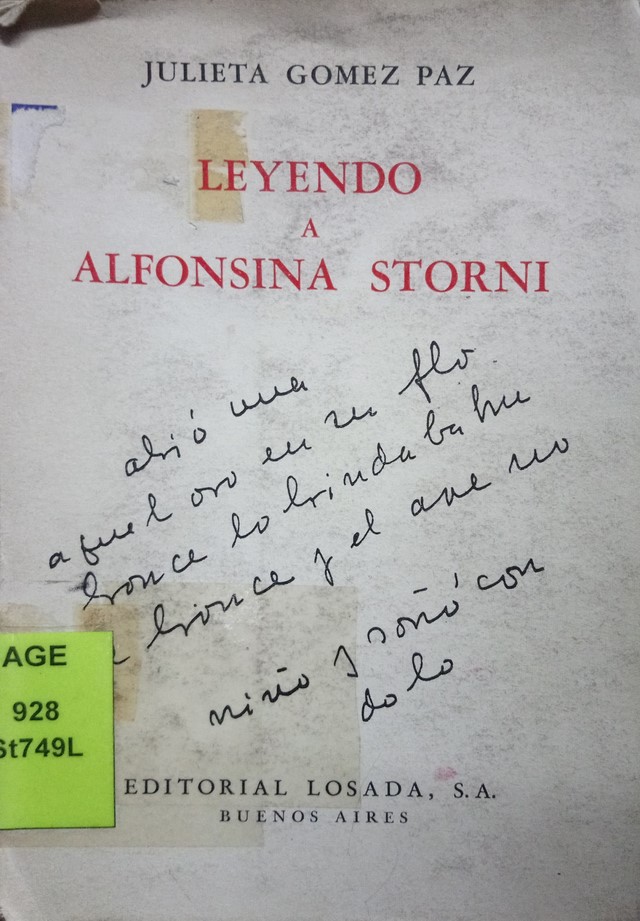 JULIETA GOMEZ PAZ
LEYENDO
A
ALFONSINA STORNI
abrió una
aquel oro en su flo
bronce lo brindaba hu
bronce y el ave no
niño y soñó con
do lo
AGE
928
St749L
EDITORIAL LOSADA, S.A.
BUENOS AIRES